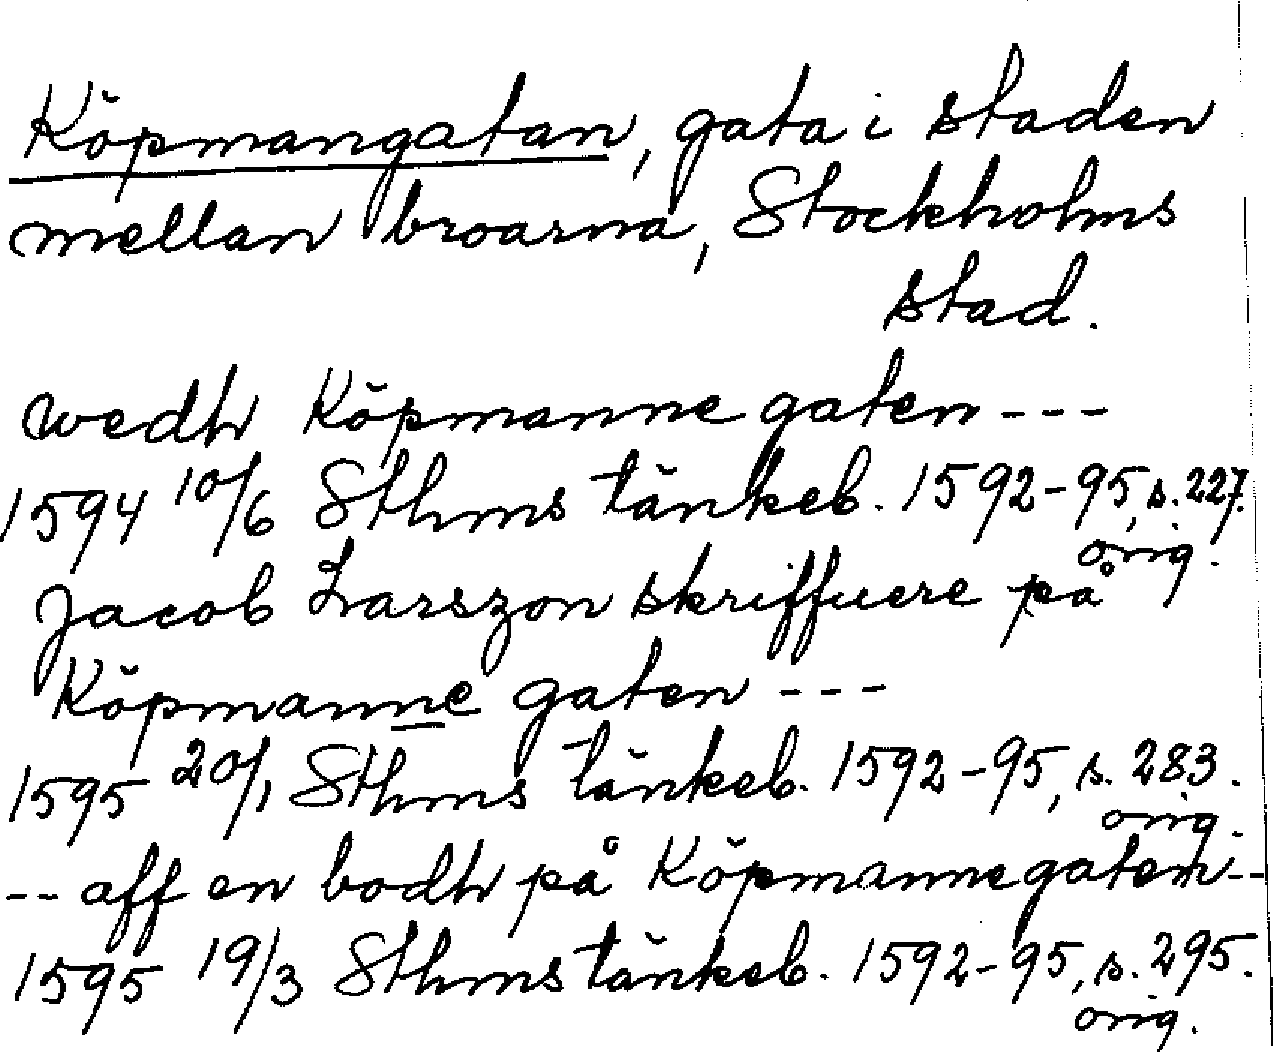 Köpmangatan, gata i staden
mellan broarna, Stockholms
stad.
wedh Köpmanne gaten ---
1594 10/6 Sthms tänkeb. 1592-95, s. 227.
orig.
Jacob Larszon skriffuere på
Köpmanne gaten ---
1595 20/1 Sthms tänkeb. 1592-95, s. 283.
orig.
-- aff en bodh på Köpmannegaten --
1595 19/3 Sthms tänkeb. 1592-95, s. 295.
orig.